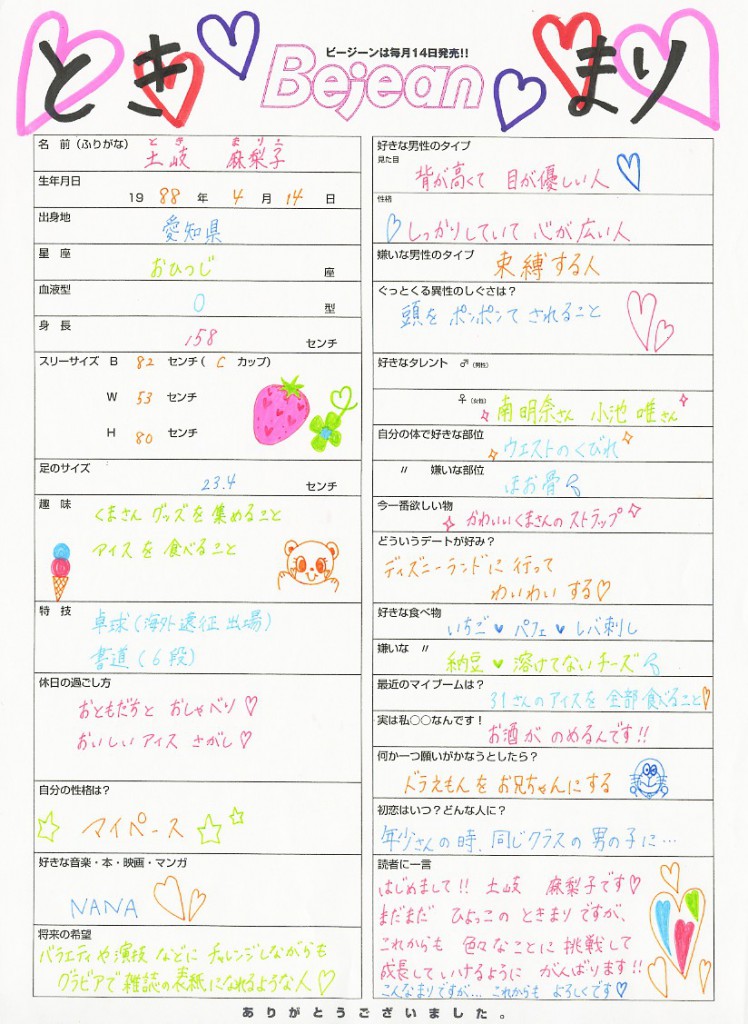 とき
ビージーンは毎月14日発売!!
Bejean
まり
名 前(ふりがな)
とき まりこ
土岐 麻梨子
生年月日
1988年 4月 14日
出身地
愛知県
星 座
おひつじ 座
血液型
O 型
身 長
158 センチ
スリーサイズ B 82 センチ( C カップ)
W 53 センチ
H 80 センチ
足のサイズ
23.4 センチ
趣 味
くまさん グッズを集めること
アイスを食べること
特 技
卓球(海外遠征出場)
書道(6段)
休日の過ごし方
おともだちと おしゃべり♡
おいしいアイス さがし♡
自分の性格は?
マイペース
好きな音楽・本・映画・マンガ
NANA
将来の希望
バラエティや演技などにチャレンジしながらも
グラビアで雑誌の表紙になれるような人♡
好きな男性のタイプ
見た目
背が高くて 目が優しい人
性格
しっかりしていて 心が広い人
嫌いな男性のタイプ
束縛する人
ぐっとくる異性のしぐさは?
頭を ポンポンて されること
好きなタレント ♂(男性)
♀(女性)
南明奈さん 小池唯さん
自分の体で好きな部位
ウエストのくびれ
〃 嫌いな部位
ほお骨
今一番欲しい物
かわいいくまさんのストラップ
どういうデートが好み?
ディズニーランドに行って
わいわい する♡
好きな食べ物
いちご♥パフェ♥レバ刺し
嫌いな 〃
納豆♥溶けてないチーズ
最近のマイブームは?
31さんのアイスを全部食べること♡
実は私○○なんです!
お酒が のめるんです!!
何か一つ願いがかなうとしたら?
ドラえもんをお兄ちゃんにする
初恋はいつ?どんな人に?
年少さんの時、同じクラスの男の子に…
読者に一言
はじめまして!! 土岐 麻梨子です♡
まだまだ ひよっこの ときまりですが、
これからも 色々なことに挑戦して
成長していけるように がんばります!!
こんなまりですが… これからも よろしくです♡
ありがとうございました。